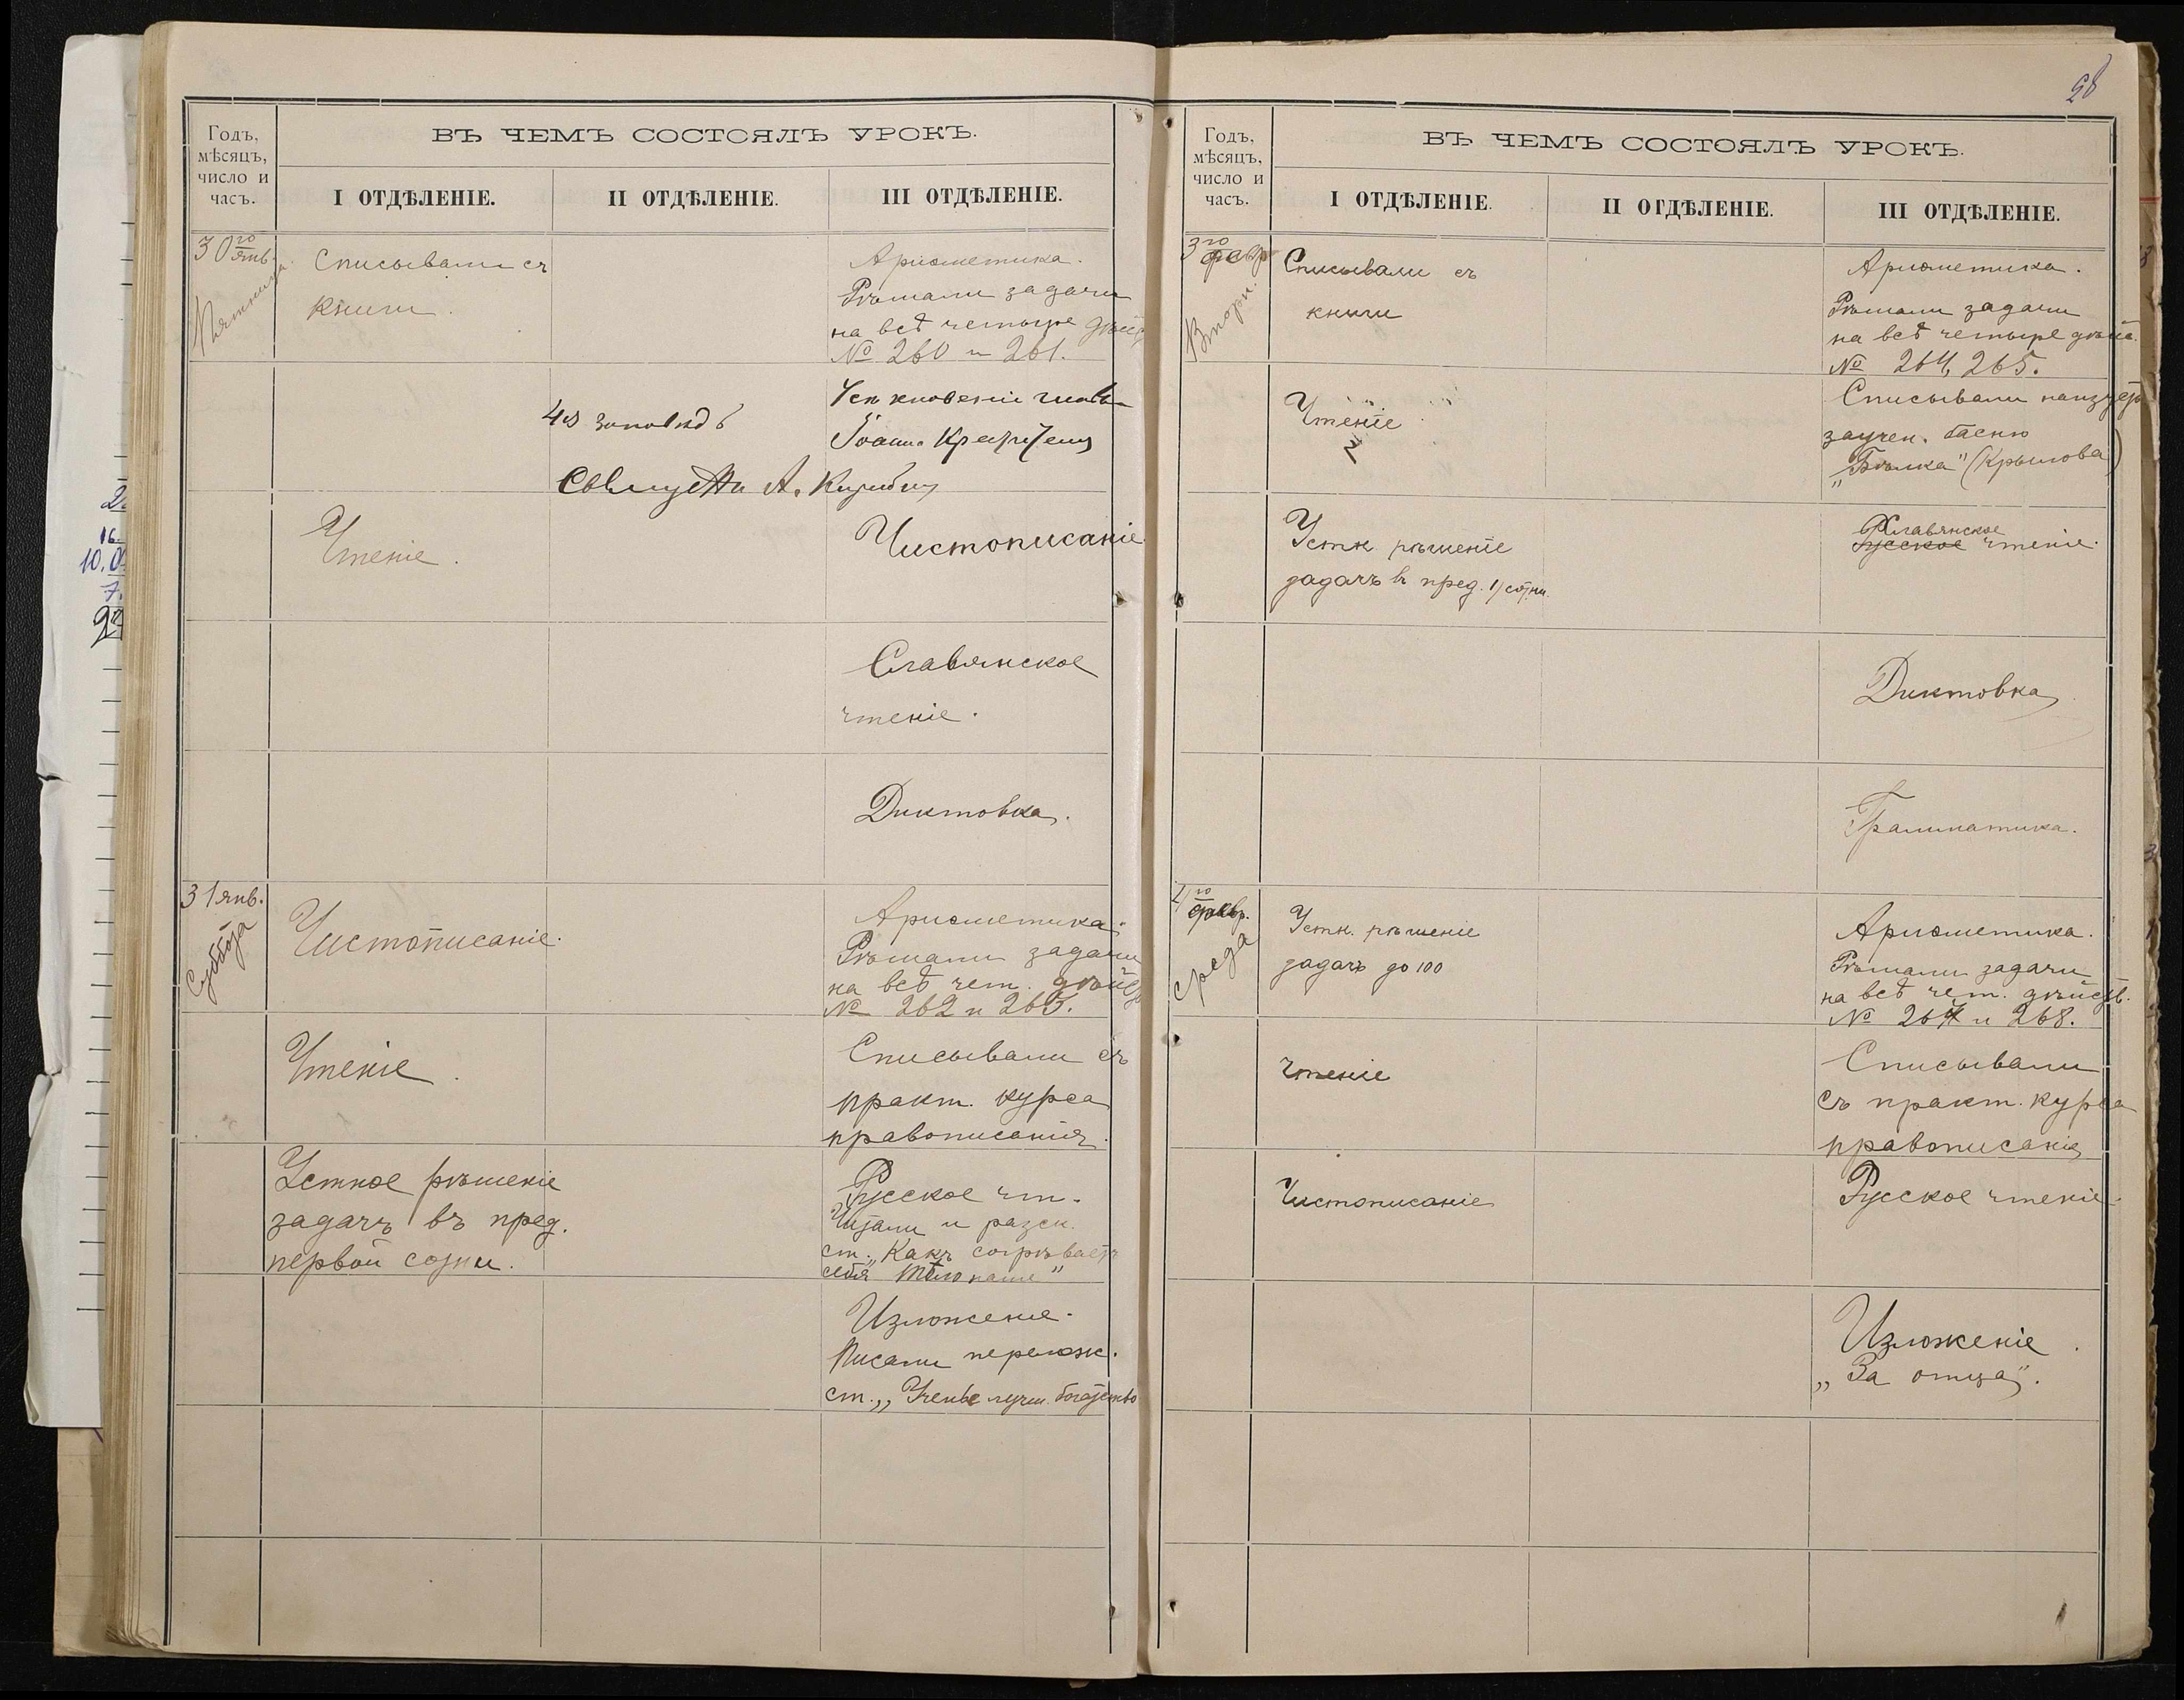 Годъ,
мѣсяцъ,
число и
часъ.
ВЪ ЧЕМЪ СОСТОЯЛЪ УРОКЪ.
I ОТДѢЛЕНІЕ.
II ОТДѢЛЕНІЕ.
III ОТДѢЛЕНІЕ.
30го янв.
Пятница
Списывали съ
книги.
Ариѳметика.
Рѣшали задачи
на всѣ четыре дѣйс
№ 260 и 261.
4я заповѣдь
Усѣкновеніе главы
Іоанна Крестителя
Священникъ А.
Чтеніе.
Чистописаніе.
Славянское
чтеніе.
Диктовка.
31 янв.
Суббота
Чистописаніе.
Ариѳметика.
Рѣшали задачи
на всѣ чет. дѣйс
№ 262 и 263.
Чтеніе.
Списывали съ
практ. курса
правописанія.
Устное рѣшеніе
задачъ въ пред.
первой сотни.
Русское чт.
Читали и разск.
ст. „Какъ согрѣваетъ
себя тѣло наше"
Изложеніе.
Писали перелож.
ст. „Ученье лучш. богатство
58
Годъ,
мѣсяцъ,
число и
часъ.
ВЪ ЧЕМЪ СОСТОЯЛЪ УРОКЪ.
I ОТДѢЛЕНІЕ.
II ОТДѢЛЕНІЕ.
III ОТДѢЛЕНІЕ.
3го февр
Вторн.
Списывали съ
книги
Ариѳметика.
Рѣшали задачи
на всѣ четыре дѣйс.
№ 264, 265.
Чтеніе
Списывали наизусть
заучен. басню
„Бѣлка" (Крылова)
Устн. рѣшеніе
задачъ въ пред. 1) сотни.
Славянское
Русское чтеніе.
Диктовка
Грамматика.
4го февр.
Среда
Устн. рѣшеніе
задачъ до 100
Ариѳметика.
Рѣшали задачи
на всѣ чет. дѣйств.
№ 267 и 268.
Чтеніе
Списывали
съ практ. курса
правописанія
Чистописаніе
Русское чтеніе.
Изложеніе.
„За отца".